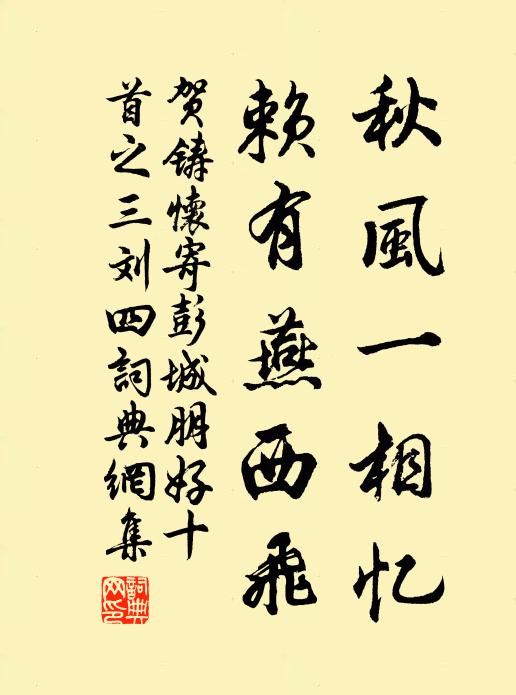 秋風一相忆
賴有燕西飛
賀鑄懷寄彭城朋好十
首之三刘四詞典網集
詞典网印